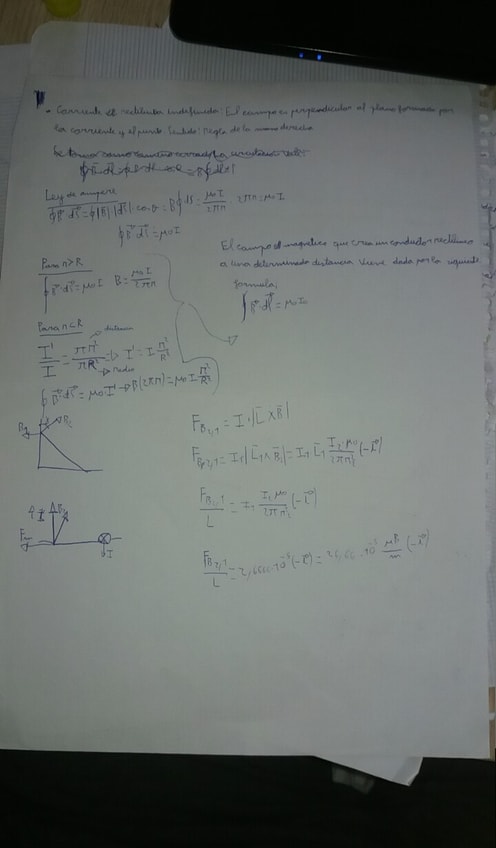 Corriente rectilinea indefinida: El campo es perpendicular al plano formado por
la corriente y el punto. Sentido: Regla de la mano derecha
Ley de ampere
∮B⃗·dl⃗ = ∮|B|·|dl⃗|·cos θ = B∮dl = μ0 I / 2πr · 2πr = μ0 I
∮B⃗·dl⃗ = μ0 I
El campo magnetico que crea un conductor rectilineo
a una determinada distancia viene dada por la siguiente
formula:
∮B⃗·dl⃗ = μ0 I
Para r>R
∮B⃗·dl⃗ = μ0 I B = μ0 I / 2πr
Para r<R
distancia
I'/I = πr²/πR² => I' = I r²/R²
Radio
∮B⃗·dl⃗ = μ0 I' → B(2πr) = μ0 I r²/R²
F_B2,1 = I·|L̄ × B̄|
F_B2,1 = I1|L̄1 ∧ B̄2| = I1 L̄1 I2 μ0 / 2πr (-i⃗)
F_B2,1 / L = I1 I2 μ0 / 2πr (-i⃗)
I